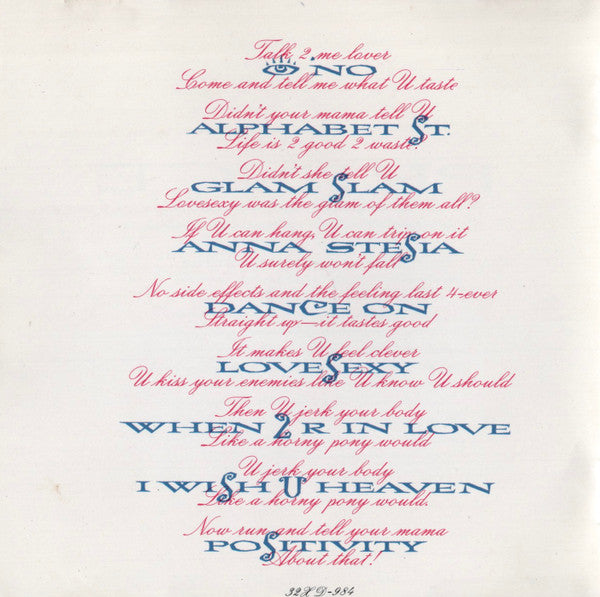 Talk 2 me lover
NO
Come and tell me what U taste
Didn't your mama tell U
ALPHABET ST.
Life is 2 good 2 waste?
Didn't she tell U
GLAM SLAM
Lovesexy was the glam of them all?
If U can hang, U can trip on it
ANNA STESIA
U surely won't fall
No side effects and the feeling last 4-ever
DANCE ON
Straight up—it tastes good
It makes U feel clever
LOVESEXY
U kiss your enemies like U know U should
Then U jerk your body
WHEN 2 R IN LOVE
Like a horny pony would
U jerk your body
I WISH U HEAVEN
Like a horny pony would.
Now run and tell your mama
POSITIVITY
About that!
32XD-984